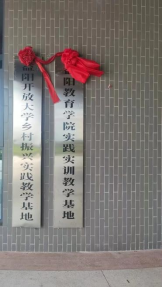 阳开放大学乡村振兴实践教学基地
阳教育学院实践实训教学基地